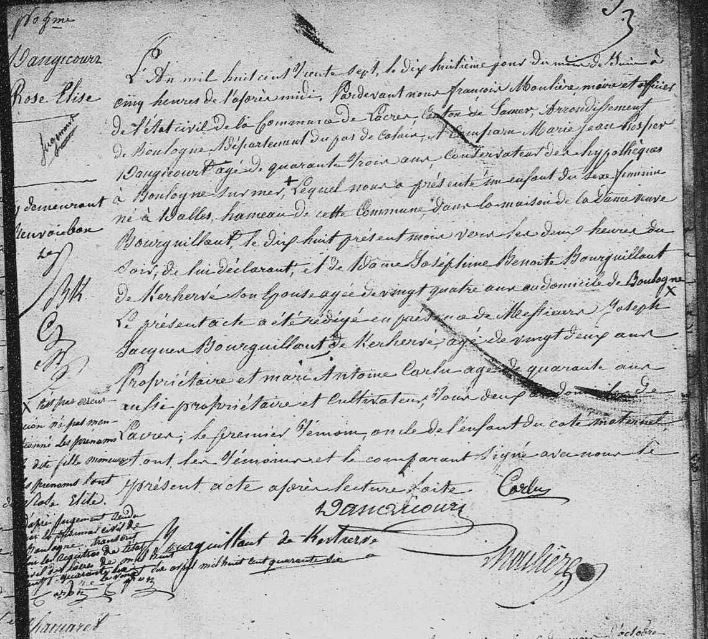 Dangicourt
Rose Elise
Jugement
y demeurant
L'An mil huit cent trente sept, le dix huitième jour du mois de Juin à
cinq heures de l'après midi, Pardevant nous françois Moulière maire et officier
de l'état civil de la Commune de Lacres, Canton de Samer, Arrondissement
de Boulogne, Département du pas de Calais, est Comparu Marie Jean Prosper
Dangicourt agé de quarante trois ans Conservateur des hypothèques
à Boulogne sur mer, + Lequel nous a présenté un enfant du sexe féminin
né à Dalles, hameau de cette Commune dans la maison de la Dame veuve
Bourguillaut, le dix huit présent mois vers les deux heures du
Soir, de lui déclarant, et de Dame Joséphine Benoite Bourguillaut
de Kerhervé son épouse agée de vingt quatre ans au domicile de Boulogne X
Le présent acte a été rédigé en présence de Messieurs Joseph
Jacques Bourguillaut de Kerhervé, agé de vingt deux ans
Propriétaire et mari Antoine Carlu agé de quarante ans
aussi propriétaire et Cultivateur, tous deux domiciliés de
Lacres, le premier témoin, oncle de l'enfant du coté maternel
et ont les témoins et le comparant Signé avec nous le
présent acte après lecture faite
Carlu
Dangicourt
Bourguillaut de Kerhervé
Moulière
X
les prénoms
prénoms sont
Rose Elise.
jugement rendu
par le tribunal civil de
Boulogne
avril mil huit cent quarante six